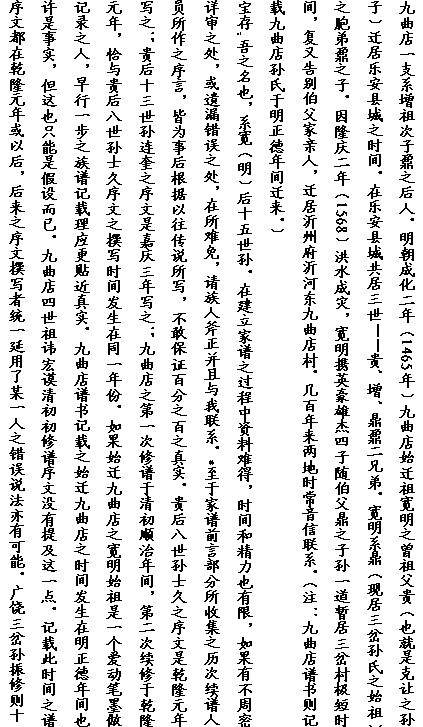 九曲店一支系增祖次子鼐之后人。明朝成化二年（1465年）九曲店始迁祖宽明之曾祖父贵（也就是克让之孙
子）迁居乐安县城之时间。在乐安县城共居三世——贵、增、鼎鼐二兄弟。宽明系鼎（现居三岔孙氏之始祖）
之胞弟鼐之子。因隆庆二年（1568）洪水成灾，宽明携英豪雄杰四子随伯父鼎之子孙一道暂居三岔村极短时
间，复又告别伯父家亲人，迁居沂州府沂河东九曲店村。几百年来两地时常音信联系。（注：九曲店谱书则记
载九曲店孙氏于明正德年间迁来。）
宝存，吾之名也，系宽（明）后十五世孙。在建立家谱之过程中资料难得，时间和精力也有限，如果有不周密
详审之处，或遗漏错误之处，在所难免，请族人斧正并且与我联系。*至于家谱前言部分所收集之历次续谱人
员所作之序言，皆为事后根据以往传说所写，不敢保证百分之百之真实。贵后八世孙士久之序文是乾隆元年
写之；贵后十三世孙连奎之序文是嘉庆三年写之；九曲店之第一次修谱于清初顺治年间，第二次续修于乾隆
元年，恰与贵后八世孙士久序文之撰写时间发生在同一年份。如果始迁九曲店之宽明始祖是一个爱动笔墨做
记录之人，早行一步之族谱记载理应更贴近真实。九曲店谱书记载之始迁九曲店之时间发生在明正德年间也
许是事实，但这也只能是假设而已。九曲店四世祖讳宏谟清初初修谱序文没有提及这一点。记载此时间之谱
序文都在乾隆元年或以后，后来之序文撰写者统一延用了某一人之错误说法亦有可能。广饶三岔孙振修则十